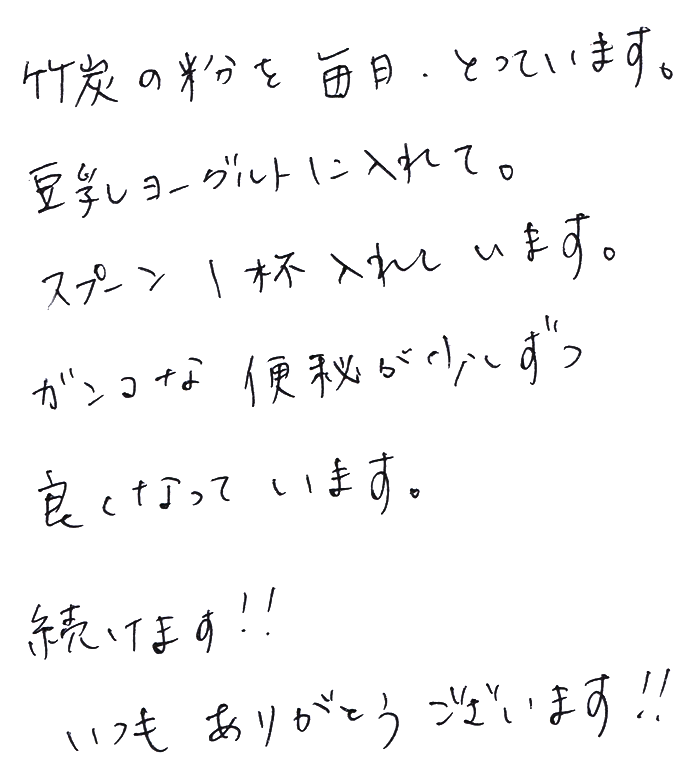 竹炭の粉を毎日、とっています。
豆乳ヨーグルトに入れて。
スプーン1杯入れています。
ガンコな便秘が少しずつ
良くなっています。
続けます!!
いつもありがとうございます!!